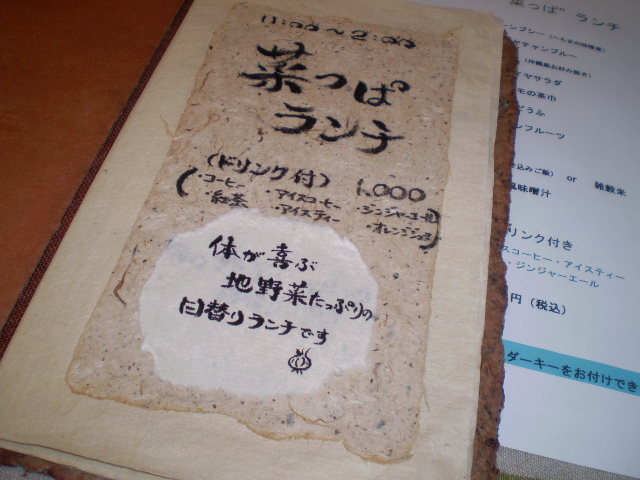 11:00~2:00
菜っぱ
ランチ
(ドリンク付) 1,000
・コーヒー ・アイスコーヒー ・ジンジャーエール
・紅茶 ・アイスティー ・オレンジジュース
体が喜ぶ
地野菜たっぷりの
日替りランチです
菜っぱ" ランチ
ンプシー
チャンプルー
(沖縄風お好み焼き)
イヤサラダ
モの茶巾
どうふ
ンフルーツ
込みご飯) or 雑穀米
風味噌汁
リンク付き
スコーヒー・アイスティー
・ジンジャーエール
円(税込)
ダーキーをお付けでき